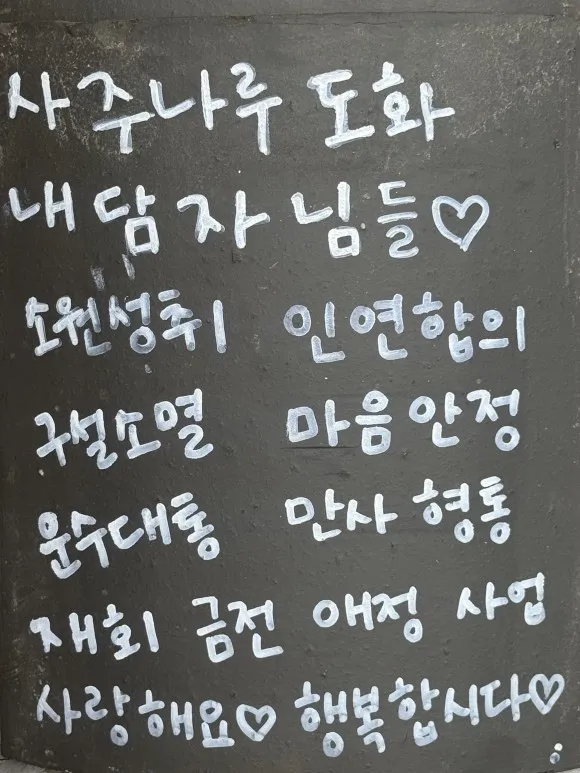 사주나루 도화
내담자님들♡
소원성취 인연합의
구설소멸 마음안정
운수대통 만사형통
재회 금전 애정 사업
사랑해요♡ 행복합시다♡